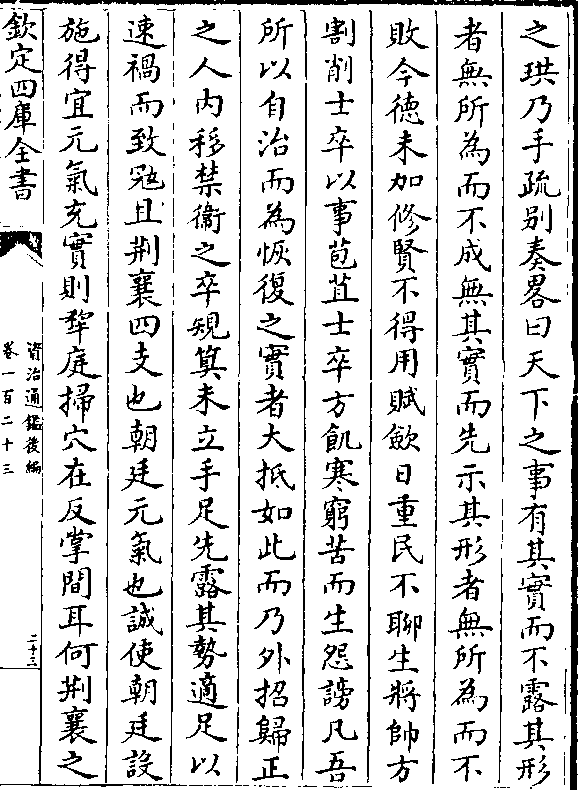 之珙乃手疏别奏畧曰天下之事有其實而不露其形
者無所為而不成無其實而先示其形者無所為而不
敗今徳未加修賢不得用賦歛日重民不聊生將帥方
割削士卒以事苞苴士卒方飢寒窮苦而生怨謗凡吾
所以自治而為恢復之實者大抵如此而乃外招歸正
之人内移禁衞之卒規算未立手足先露其勢適足以
速禍而致冦且荆襄四支也朝廷元氣也誠使朝廷設
施得宜元氣充實則犂庭掃穴在反掌間耳何荆襄之
欽定四庫全書
資治通鑑後編
卷一百二十三
二十三